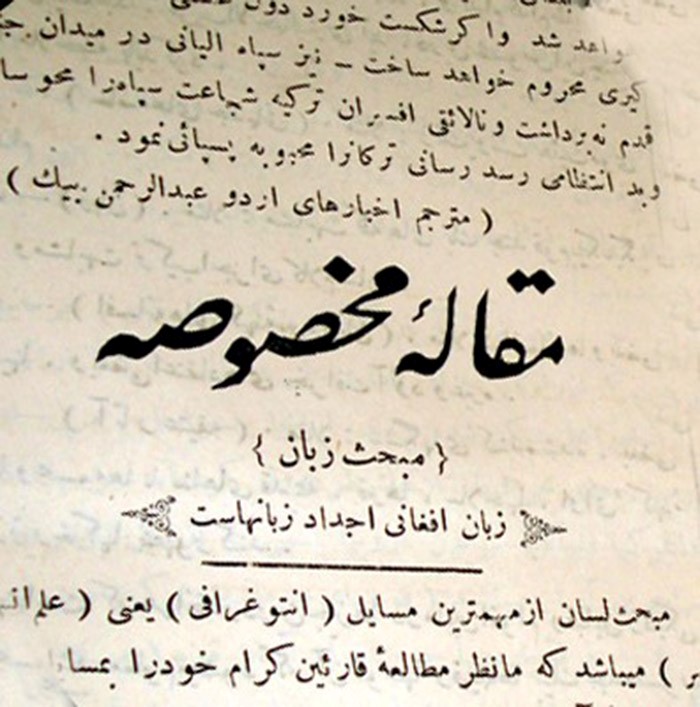 خواهد شد واگر شکست خورد دول
گیری محروم خواهد ساخت – نیز سپاه البانی در میدان
قدم نه برداشت ونالائقی افسران ترکیه شجاعت سپاه را محو
وبد انتظامی رسد رسانی ترکانرا مجبور به پسپائی نمود .
( مترجم اخبارهای اردو عبدالرحمن بیك )
مقالهٔ مخصوصه
{ مبحث زبان }
زبان افغانی اجداد زبانهاست
مبحث لسان از مهمترین مسایل ( انتوغرافی ) یعنی ( علم
) میباشد که مانظر مطالعهٔ قارئین کرام خودرا